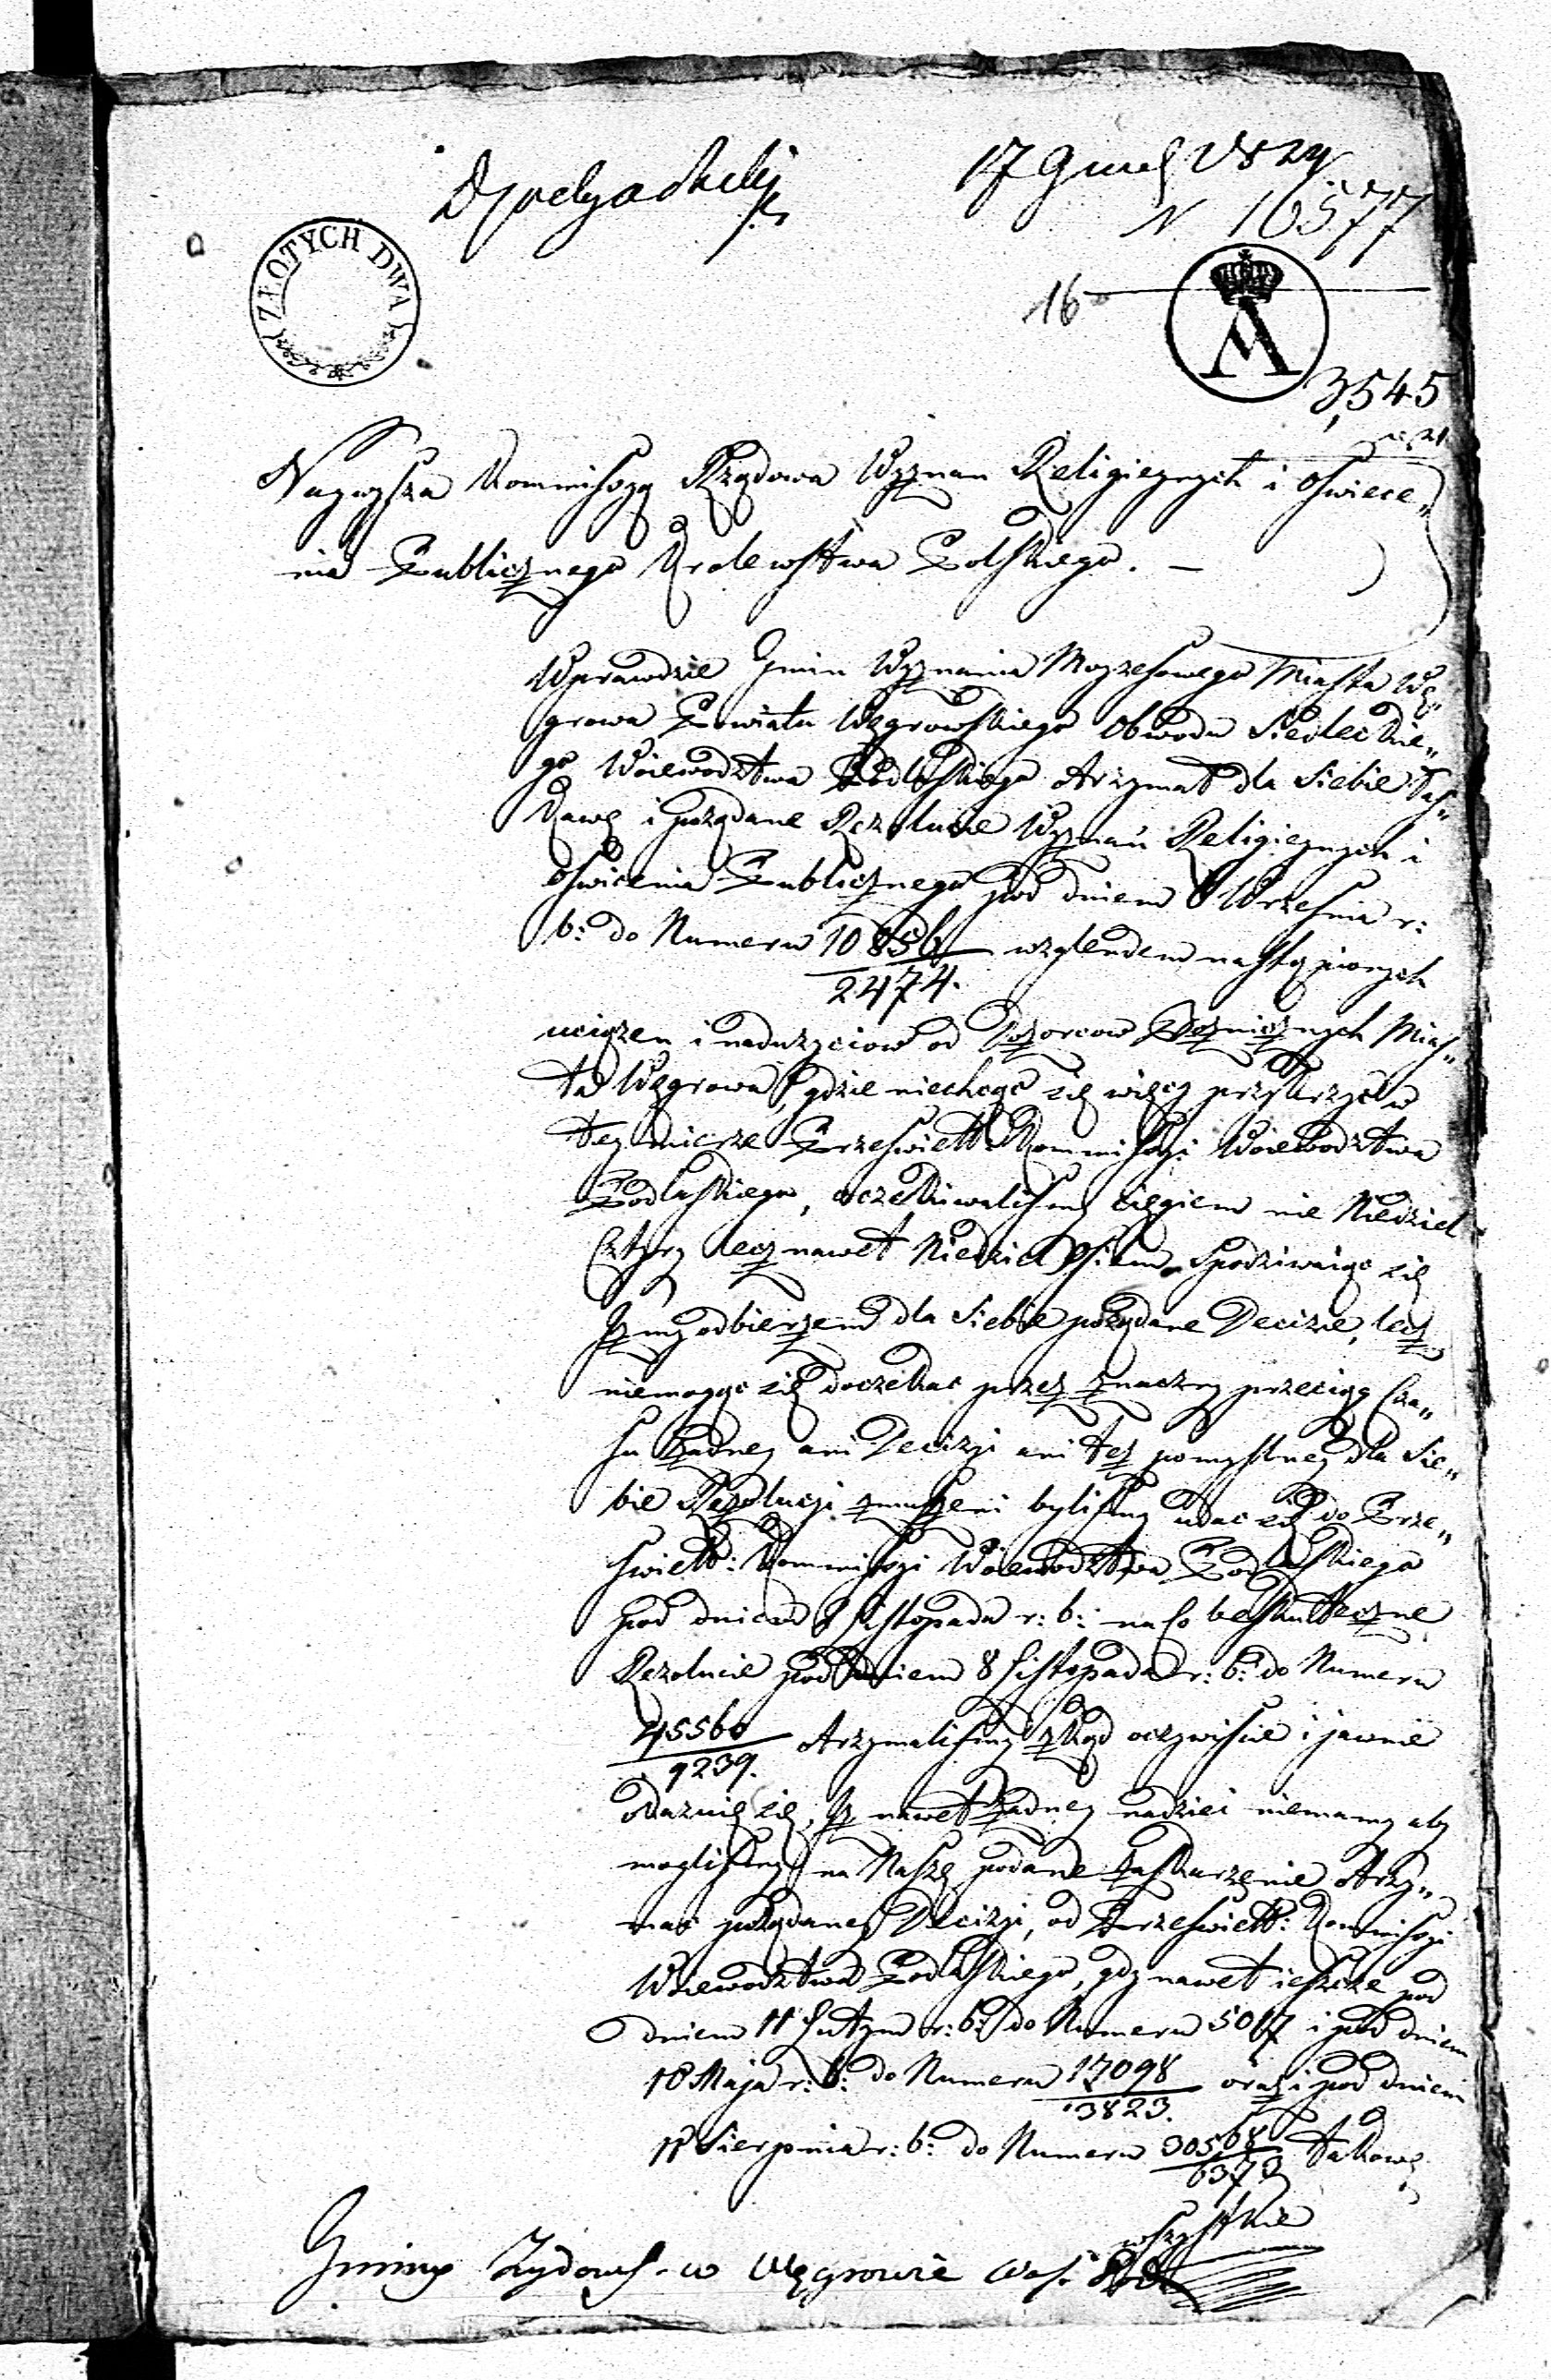 17 1824
N. 16577
ZŁOTYCH DWA
16
3,545
Naywyższa Kommissya Rządowa Wyznan Religieynych i Oswiece„
nia Publicznego Krolewstwa Polskiego. —
Wprawdzie Gmin Wyznania Moyzeszowego Miasta Wę„
growa Powiatu Węgrowskiego Obwodu Siedleckie„
go Woiewodztwa Podlaskiego otrzymał dla siebie łas„
kawę i pożądane Rezolucie Wyznań Religieynych i
Oswicenia Publicznego pod dniem 6 Wrzesnia r:
b: do Numeru 10856/2474. wzglendem nastąpionych
uciązen i naduzyciow od Dozorcow Bożnicznych Mias„
ta Węgrowa, gdzie niechcąc się więcy przykrzyc w
tey mierze Przeswiett: Kommissyi Woiewodztwa
Podlaskiego, oczekiwalismy ciągiem nie Niedziel
Cztyry lecz nawet Niedziel osiem, spodziwaiąc się
Iż my odbierzem dla siebie pożądane Decizie, lecz
niemogąc się doczekac przez znaczny przeciąg Cza„
su żadney ani Decizyi ani też pomyslney dla sie„
bie Rezolucyi zmuszeni bylismy udac się do Prze„
swiett: Kommissyi Woiewodztwa Podlaskiego
pod dniem 8 Listopada r: b: na co beskuteczne
Rezolucie pod dniem 8 Listopada r: b: do Numeru
45560/9239. otrzymalismy zkąd oczywiscie i jawnie
okazuię się, Iż nawet żadney nadziei niemamy aby
moglismy na Naszę podane zaskarzenie otrzy„
mac pożądaney Decizyi, od Przeswiett: Kommissyi
Woiewodztwa Podlaskiego, gdy nawet ieszcze pod
dniem 11 Lutym r: b: do Numeru 5017 i pod dniem
18 Maja r: b: do Numeru 17098/3823. oraz i pod dniem
11 Sierpnia r: b: do Numeru 30568/6373 takowę
wszystkie
Gminy Żydows. w Węgrowie Woi.